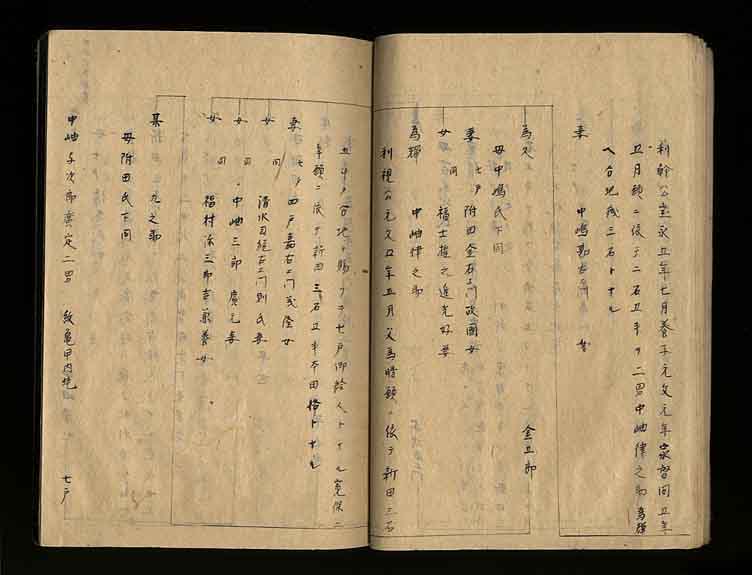 利幹公宝永五年七月養子元文元年家督同五年
五月願ニ依テ二石五斗ヲ二男中岫律之助為
ヘ合地残三石トナル
妻 中嶋勘右
為久 金五郎
母中嶋氏下同
妻 七戸附田金右エ門政国女
女 同 福士 之進光好妻
為 中岫律之助
利視公元文四年五月父為 願ニ依テ新田三石
五斗ヲ合地ヲ賜フテ七戸御給人トナル寛保二
年願ニ依テ新田三石五斗本田格トナル
妻 七戸四戸嘉右エ門茂 女
女 同 清水目 右エ門則氏妻
女 同 中岫三郎廣元妻
女 同 福村 三郎 養女
某 九之助
母附田氏下同
中岫千次郎廣定二男 紋亀甲内花 七戸